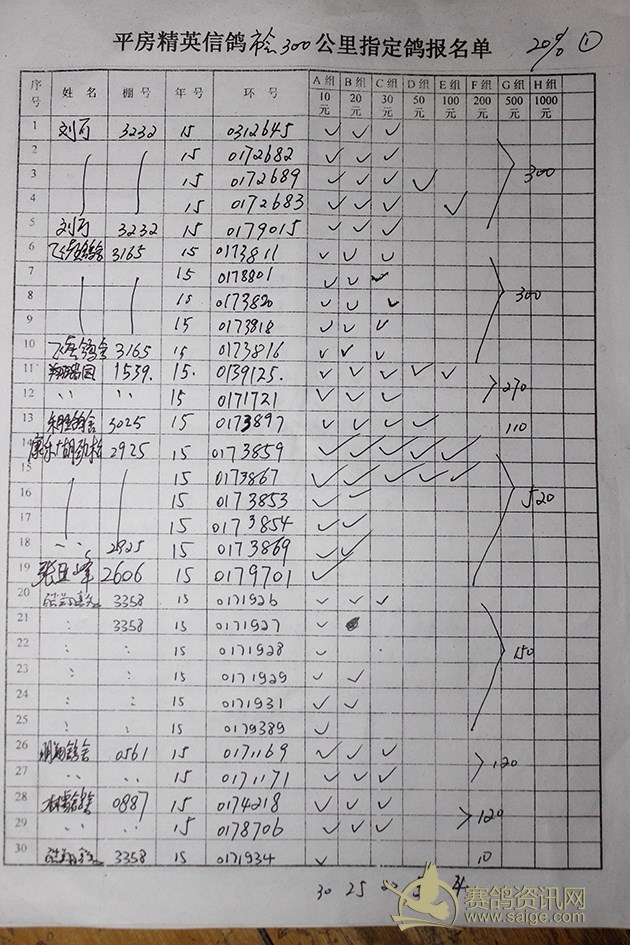 平房精英信鸽 300公里指定鸽报名单 20% ①
序号 姓名 棚号 年号 环号 A组 B组 C组 D组 E组 F组 G组 H组
10元 20元 30元 50元 100元 200元 500元 1000元
1 3232 15 0312645 ✓ ✓ ✓
2 15 0172682 ✓ ✓ ✓
3 15 0172689 ✓ ✓ ✓ ✓ 300
4 15 0172683 ✓ ✓ ✓ ✓
5 3232 15 0179015 ✓ ✓ ✓
6 3165 15 0173811 ✓ ✓ ✓
7 15 0178801 ✓ ✓ ✓
8 15 0173820 ✓ ✓ ✓ 300
9 15 0173818 ✓ ✓ ✓
10 3165 15 0173816 ✓ ✓ ✓
11 1539. 15. 0139125. ✓ ✓ ✓ ✓ ✓ 270
12 〃 〃 15 0171721 ✓ ✓ ✓
13 3025 15 0173897 ✓ ✓ ✓ ✓ 110
14 2925 15 0173859 ✓ ✓ ✓ ✓ ✓
15 15 0173867 ✓ ✓ ✓ ✓ ✓
16 15 0173853 ✓ ✓ 520
17 15 0173854 ✓ ✓
18 〃 2925 15 0173869 ✓ ✓
19 2606 15 0179701 ✓
20 3358 15 0171926 ✓ ✓ ✓
21 3358 15 0171927 ✓
22 : : 15 0171928 ✓ 150
23 : : 15 0171929 ✓ ✓
24 : : 15 0171931 ✓ ✓
25 : : 15 0179389 ✓
26 0561 15 0171169 ✓ ✓ ✓ 120
27 〃 〃 15 0171171 ✓ ✓ ✓
28 0887 15 0174218 ✓ ✓ ✓ 120
29 〃 〃 15 0178706 ✓ ✓ ✓
30 3358 15 0171934 ✓ 10
30 25
赛鸽资讯网
www.saige.com